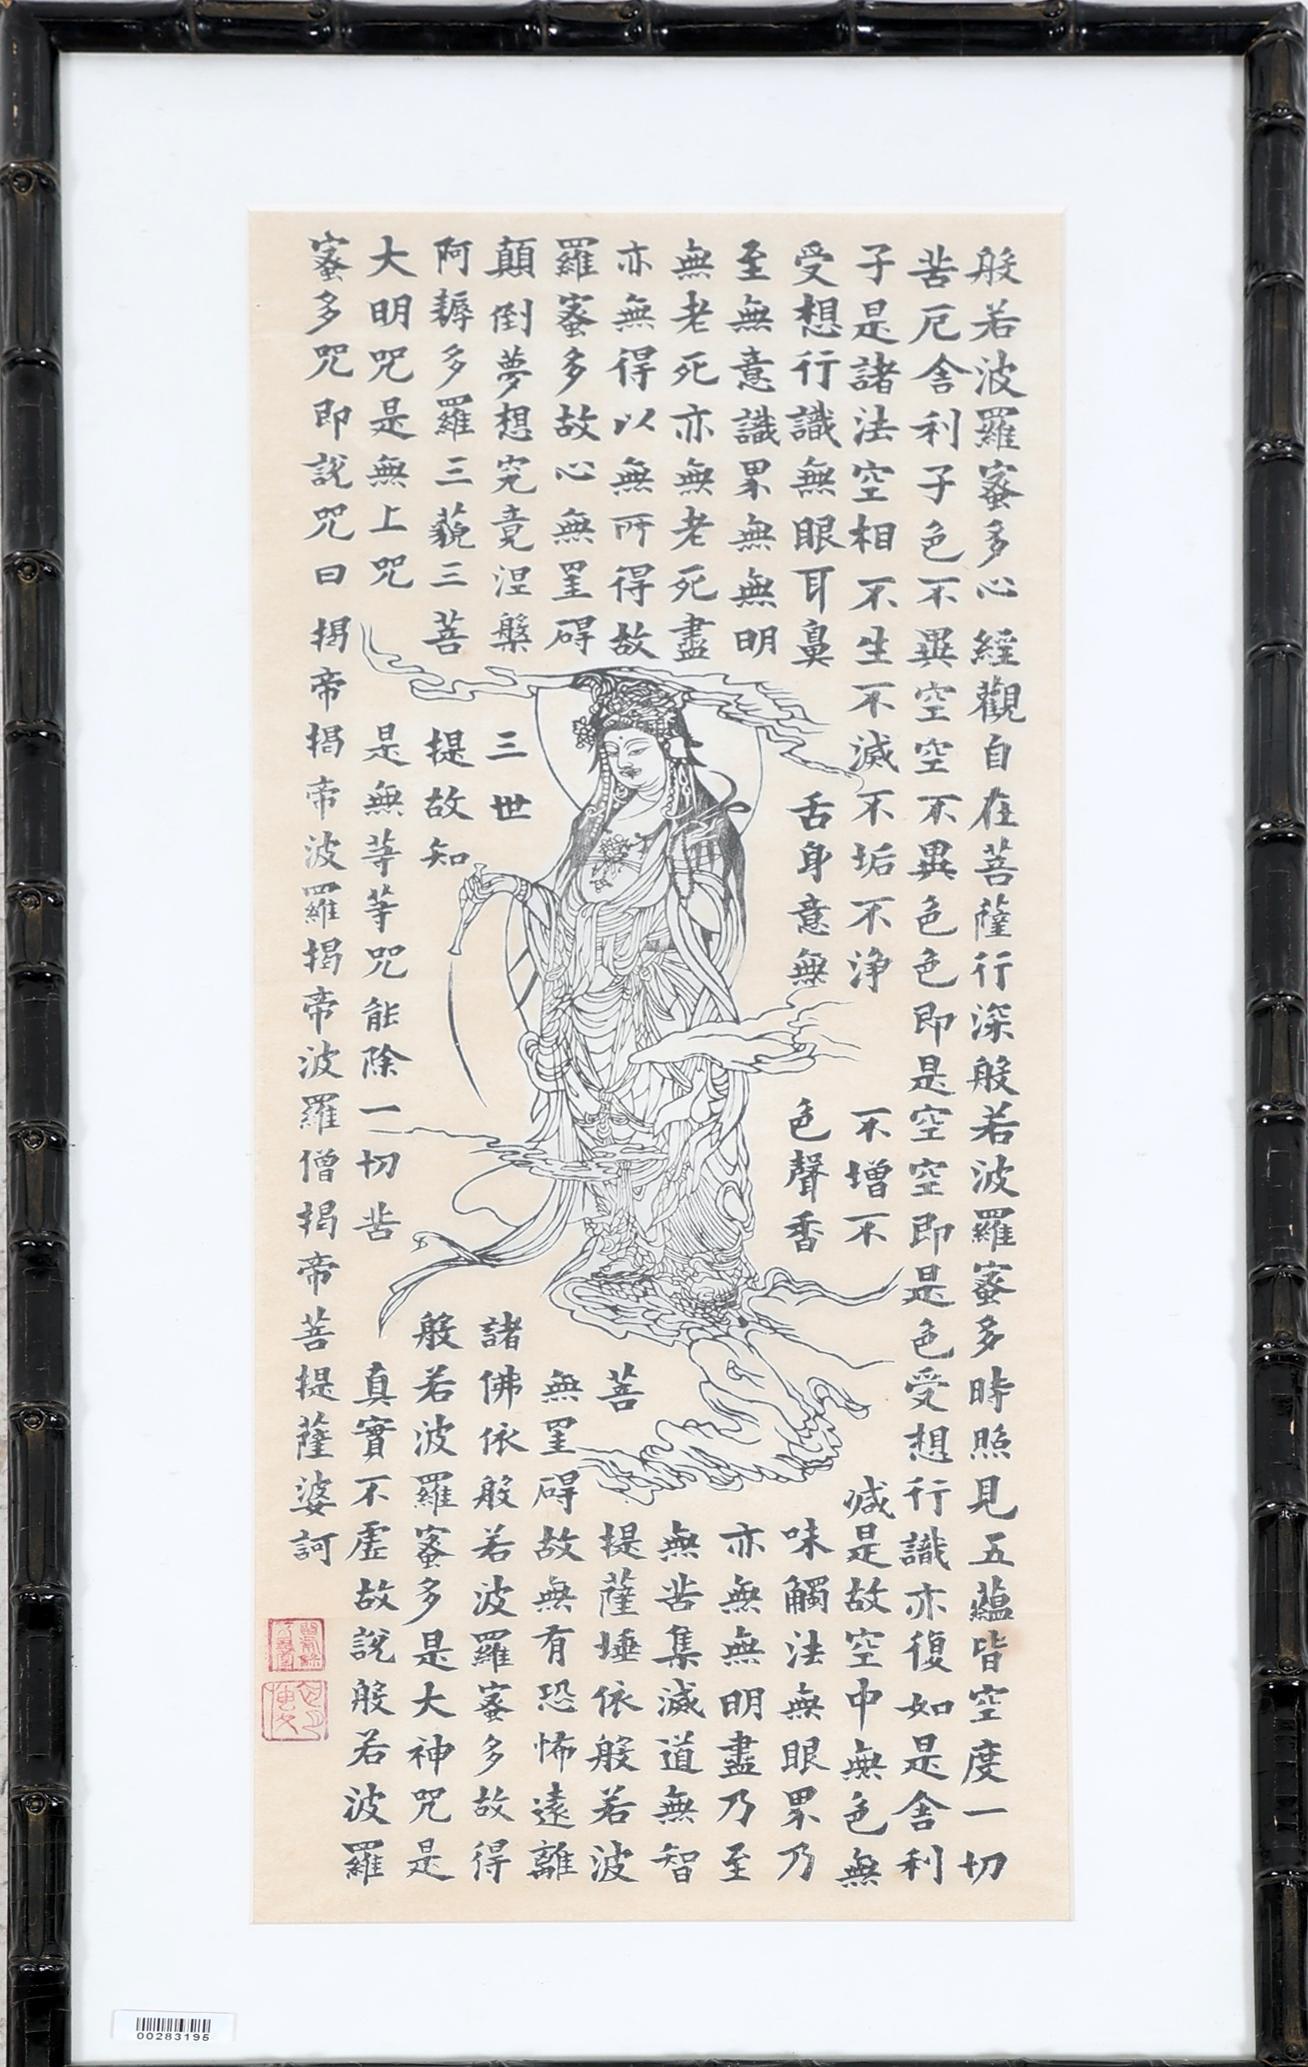 般若波羅蜜多心經觀自在菩薩行深般若波羅蜜多時照見五蘊皆空度一切
苦厄舍利子色不異空空不異色色即是空空即是色受想行識亦復如是舍利
子是諸法空相不生不滅不垢不淨不增不減是故空中無色無
受想行識無眼耳鼻舌身意無色聲香味觸法無眼界乃
至無意識界無無明亦無無明盡乃至
無老死亦無老死盡無苦集滅道無智
亦無得以無所得故菩提薩埵依般若波
羅蜜多故心無罣礙無罣礙故無有恐怖遠離
顛倒夢想究竟涅槃三世諸佛依般若波羅蜜多故得
阿耨多羅三藐三菩提故知般若波羅蜜多是大神咒是
大明咒是無上咒是無等等咒能除一切苦真實不虛故說般若波羅
蜜多咒即說咒曰揭帝揭帝波羅揭帝波羅僧揭帝菩提薩婆訶
00283195